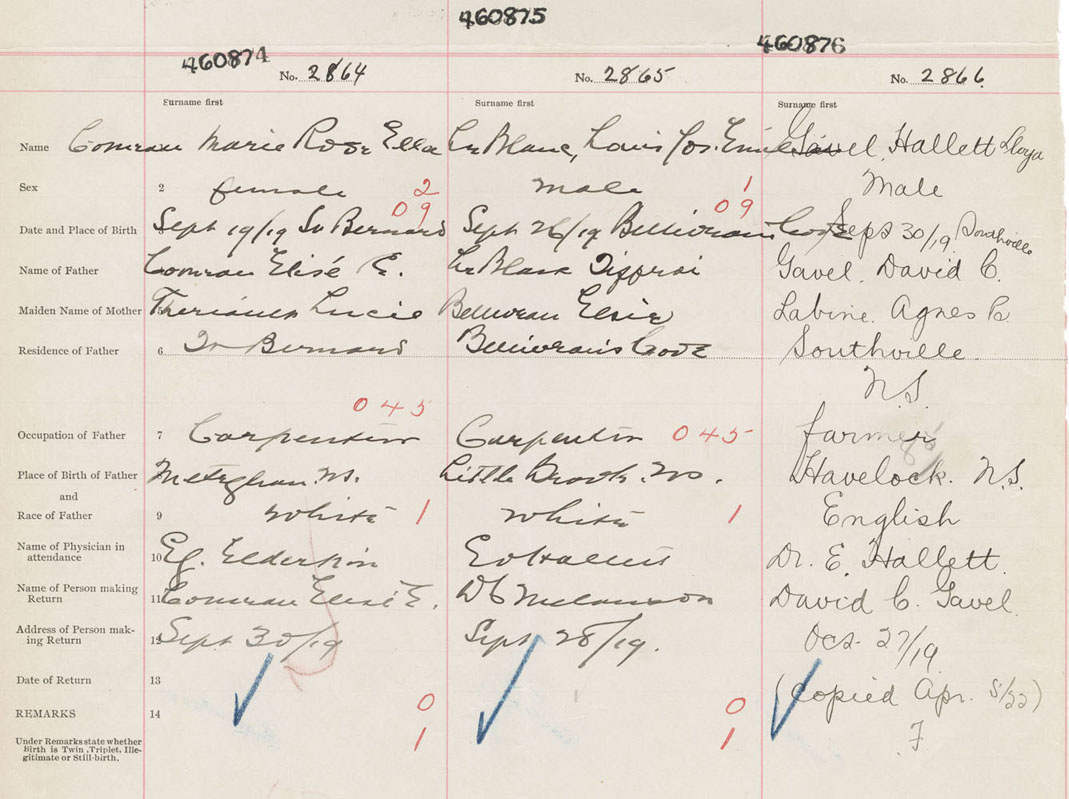 460875
460874 460876
No. 2864 No. 2865 No. 2866
Surname first Surname first Surname first
Name Comeau Marie Rose Ella LeBlanc, Louis Jos. Emile Gavel, Hallett Lloyd
Sex 2 female 2 male 1 Male
09 09
Date and Place of Birth Sept 19/19 St Bernard Sept 26/19 Belliveau Cove Sept 30/19 Southville
Name of Father Comeau Elisé E. LeBlanc Gavel David C.
Maiden Name of Mother Lucie Belliveau Elsie Labine Agnes
Residence of Father 6 St Bernard Belliveau's Cove Southville
N.S.
045
Occupation of Father 7 Carpenter Carpenter 045 farmer
Place of Birth of Father Meteghan N.S. Little Brook N.S. Havelock N.S.
and
Race of Father 9 White 1 White 1 English
Name of Physician in
attendance 10 Elderkin E Hallett Dr. E. Hallett
Name of Person making
Return 11 Comeau Elisé E. Melanson David C. Gavel
Address of Person mak-
ing Return 12 Sept 30/19 Sept 28/19. Oct 27/19
Date of Return 13 (Copied Apr. 5/22)
0 0
REMARKS 14 F
1 1
Under Remarks state whether
Birth is Twin, Triplet, Ille-
gitimate or Still-birth.